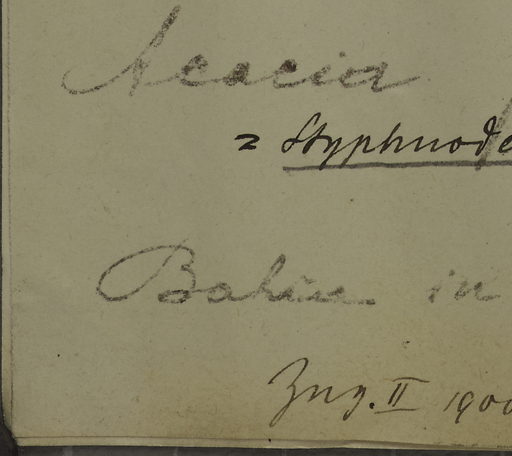 Acacia
= Styphnode
Bahia in
Zug. II 1900